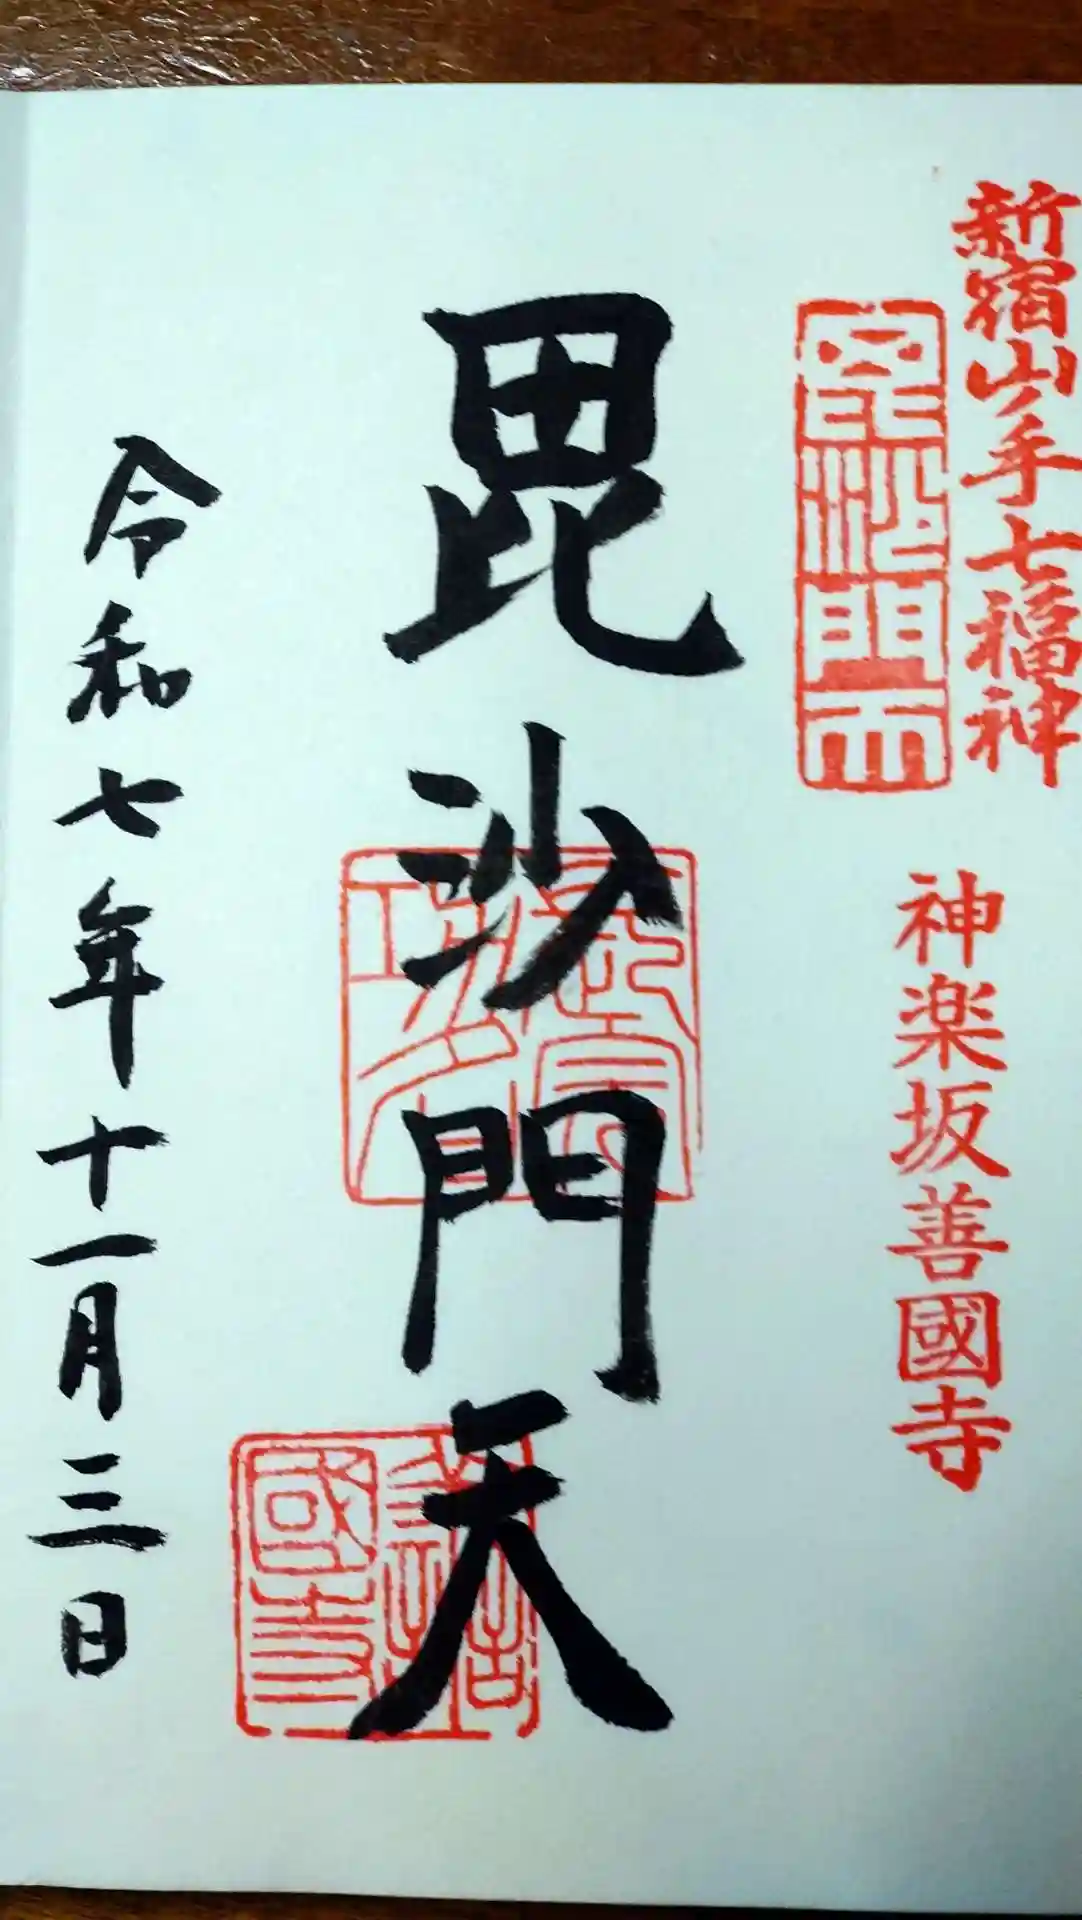 新宿山ノ手七福神
毘沙門天
神楽坂善國寺
毘沙門天
善國寺
令和七年十一月三日